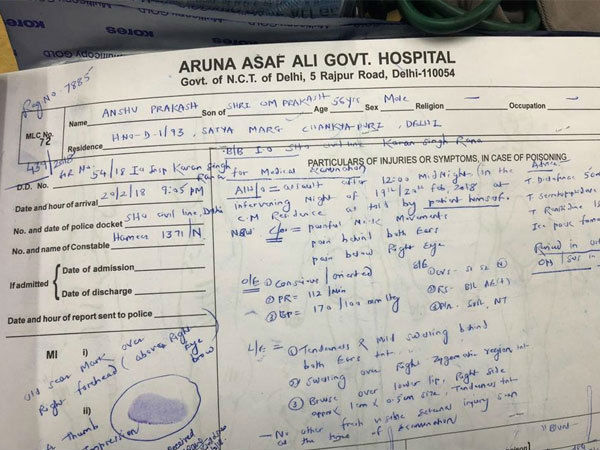 Kores
Multicopy GOLD
Reg No - 7885
ARUNA ASAF ALI GOVT. HOSPITAL
Govt. of N.C.T. of Delhi, 5 Rajpur Road, Delhi-110054
MLC No.
72
Name ANSHU PRAKASH Son of SHRI OM PRAKASH Age 56 yrs Sex Male Religion — Occupation —
Residence H.NO-D-1/93, SATYA MARG CHANKYAPURI, DELHI
B/B I.O SHO civil line Karan Singh Rana
D.D. No. 54/18 Insp Karan Singh Rana
Date and hour of arrival 20/2/18 9:05 pm
No. and date of police docket SHO civil line, Delhi
No. and name of Constable 1371/N
If admitted
Date of admission
Date of discharge
Date and hour of report sent to police
MI i)
old scar mark over
Right forehead (above Right
Eye
brow
ii)
Thumb
impression
for Medical Examination
PARTICULARS OF INJURIES OR SYMPTOMS, IN CASE OF POISONING
Alleged assault after 12:00 Mid Night (in the
intervening Night of 19th/20th Feb, 2018 at
C.M Residence as told by patient himself.
c/o = painful Neck Movements
pain behind both Ears
pain below Right Eye
O/E ① Conscious / oriented
② PR = 112 /min
③ BP = 170/100 mm Hg
S/E
① CVS - S1 S2
② RS- B/L AE(+)
③ P/A. Soft, NT
L/E = ① Tenderness & Mild swelling behind
both Ears
② Swelling over Right Zygomatic region
③ Bruise over lower lip, Right side
approx 1cm x 0.5cm size, Tenderness
— No other fresh visible external injury seen
at the time of Examination
Advice
Ice pack
"Blunt"